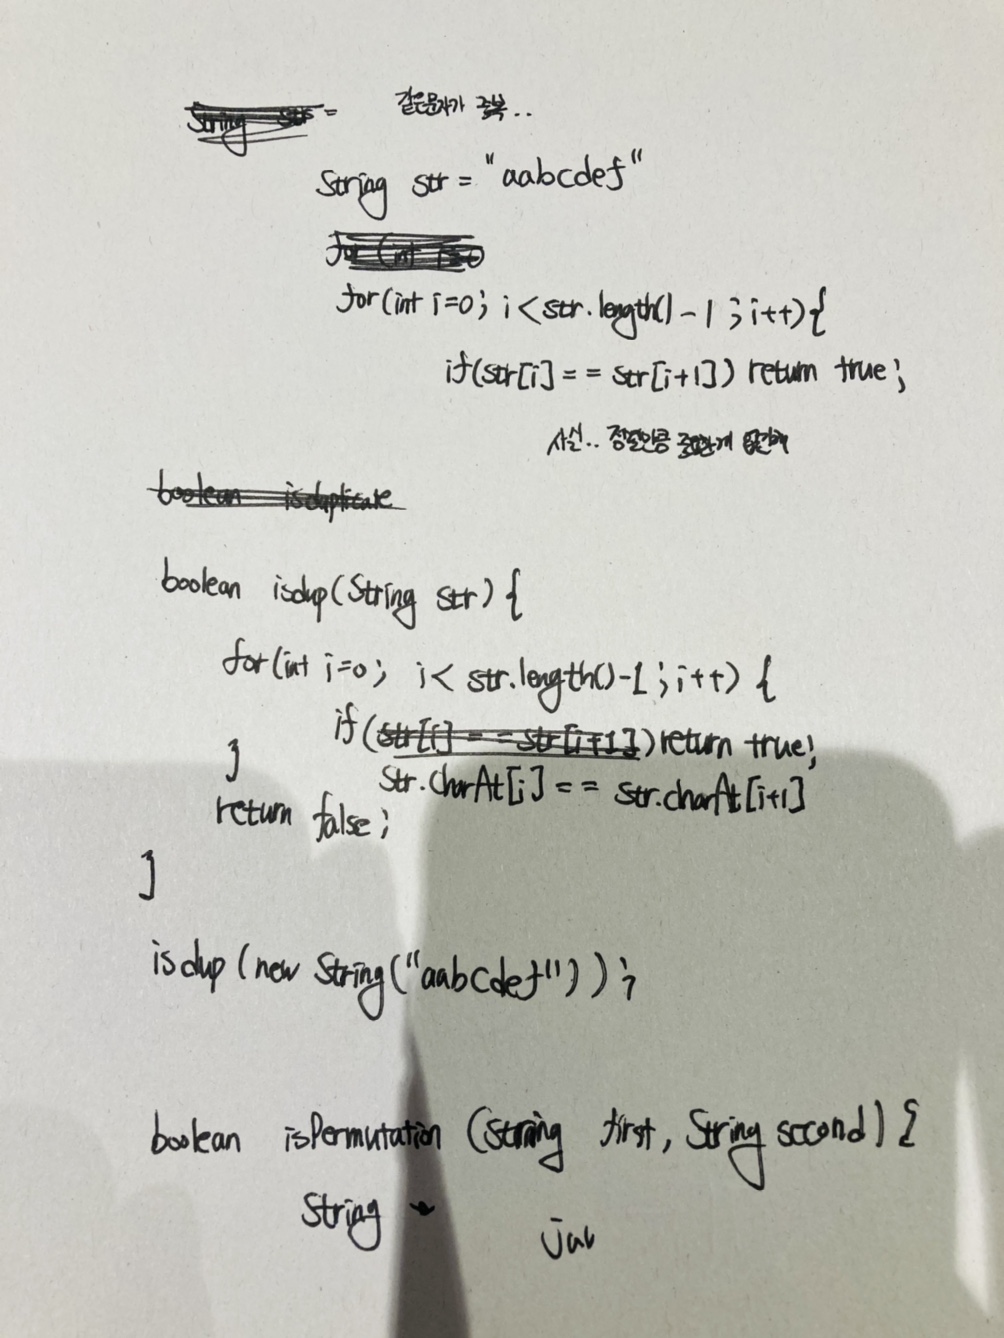 String str =
같은문자가 중복..
String str = "aabcdef"
for (int i=0
for(int i=0; i<str.length()-1; i++){
if(str[i]== str[i+1]) return true;
사실..
boolean isduplicate
boolean isdup(String str) {
for(int i=0; i< str.length()-1; i++) {
if (str[i] == str[i+1]) return true;
Str.charAt[i] == str.charAt[i+1]
}
return false;
}
isdup (new String("aabcdef"));
boolean isPermutation (String first, String second) {
String